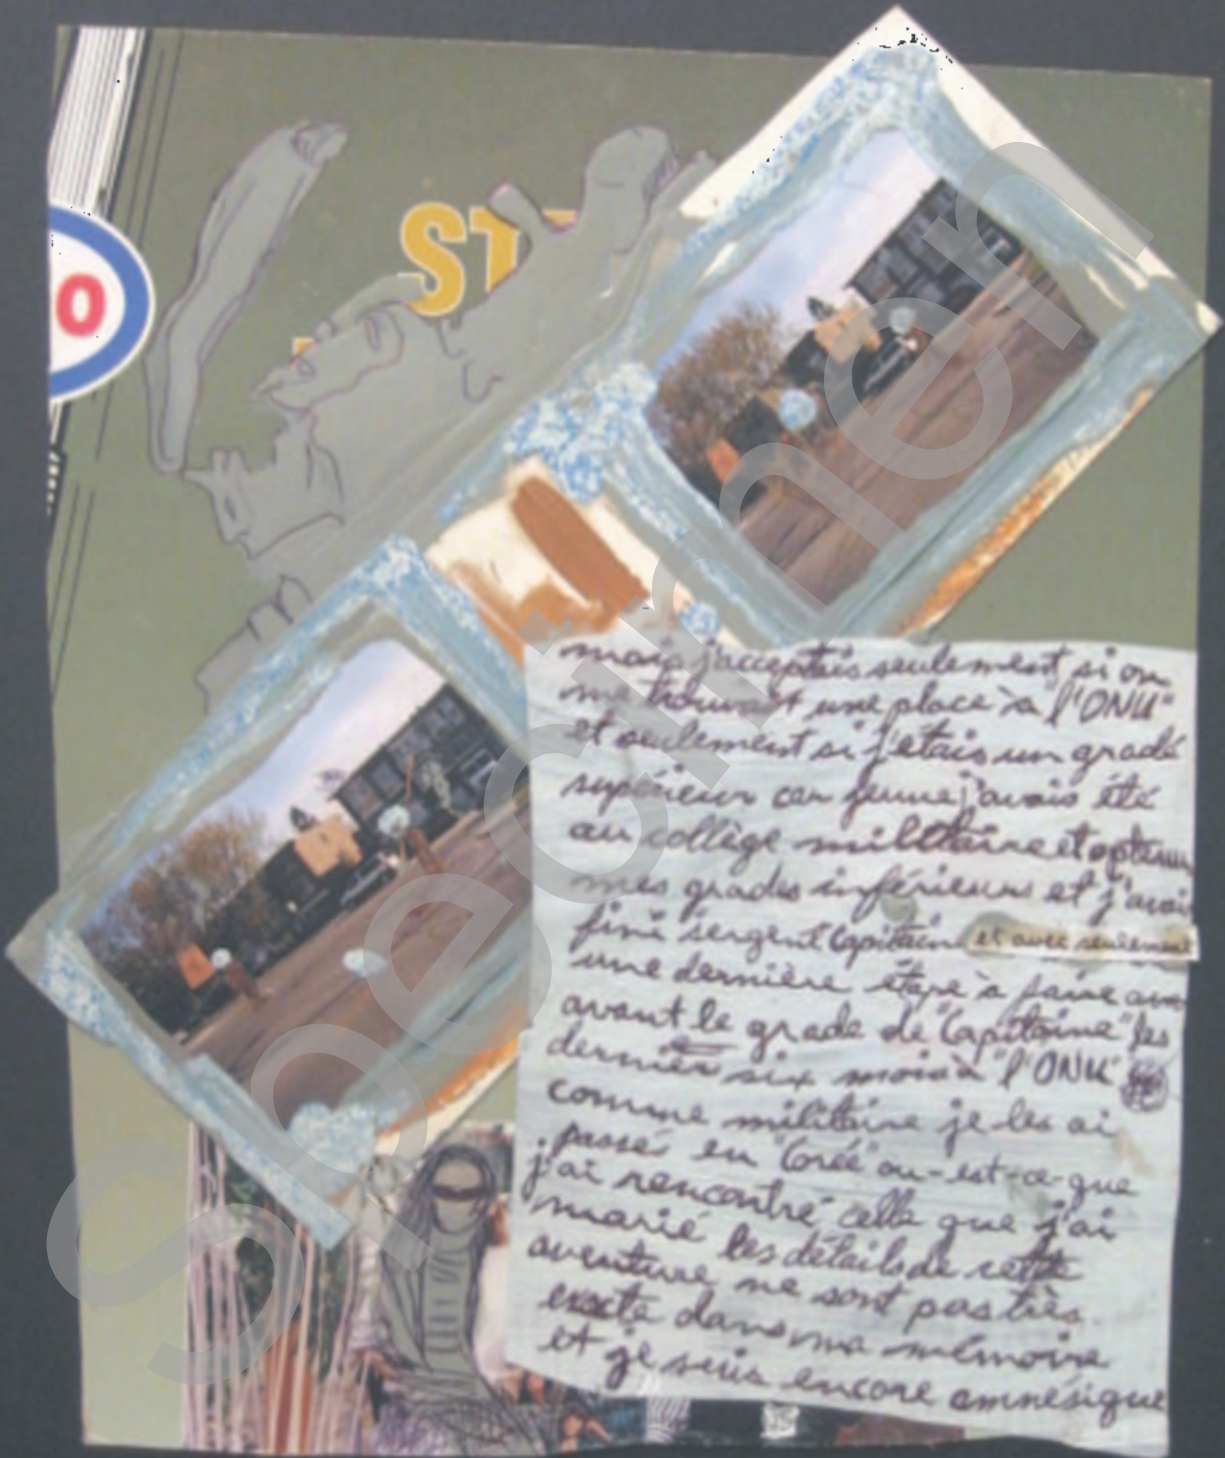 O
ST
mais j'acceptais seulement si on
me trouvait une place à "l'ONU"
et seulement si j'étais un gradé
supérieur car jeune j'avais été
au collège militaire et obtenu
mes grades inférieurs et j'avais
fini sergent Capitaine et avec seulement
une dernière étape à faire
avant le grade de "Capitaine" les
dernier six mois à "l'ONU"
comme militaire je les ai
passés en "Corée" ou-est-ce-que
j'ai rencontré celle que j'ai
marié les détails de cette
aventure ne sont pas très
exacte dans ma mémoire
et je suis encore amnésique
Specimen